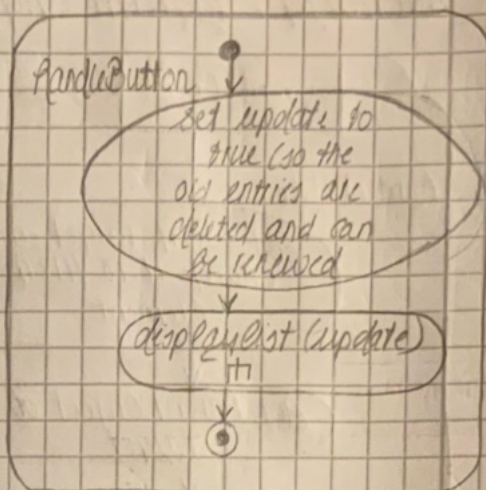 handleButton
set update to
true (so the
old entries are
deleted and can
be renewed
displaylist (update)